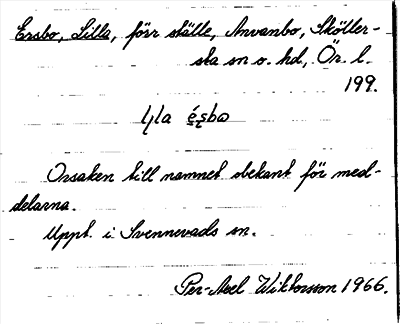 Ersbo, Lilla, förr ställe, Anvanbo, Sköller-
sta sn o. hd, Ör. l.
199.
Lįla ę́sbω
Orsaken till namnet obekant för med-
delarna.
Uppt. i Svennevads sn.
Per-Axel Wiktorsson 1966.